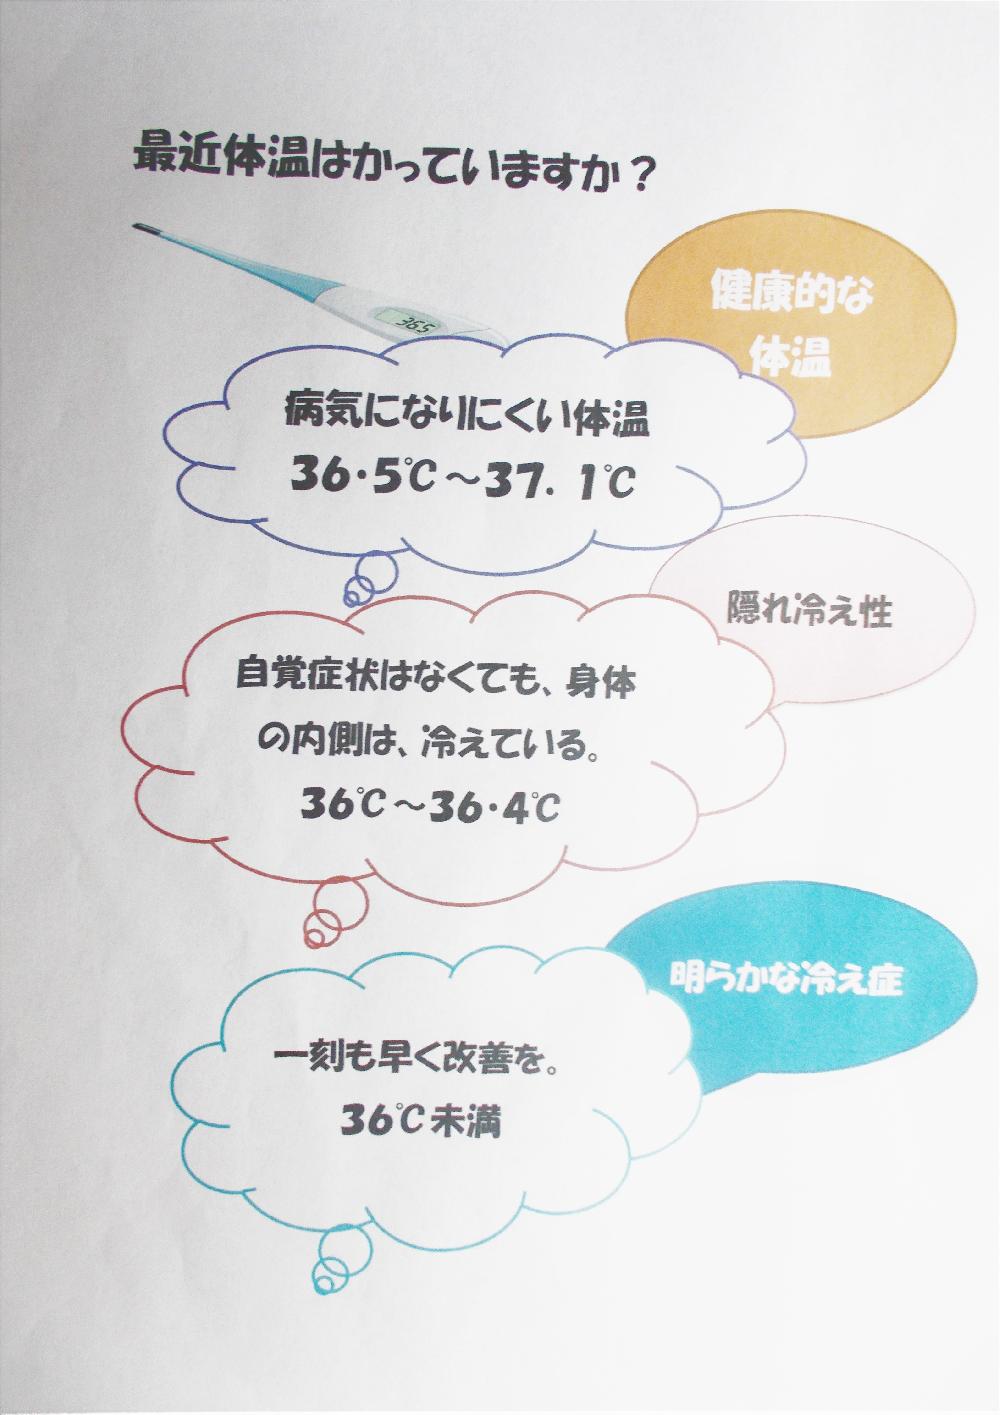 最近体温はかっていますか？
36.5
健康的な
体温
病気になりにくい体温
36・5℃～37．1℃
隠れ冷え性
自覚症状はなくても、身体
の内側は、冷えている。
36℃～36・4℃
明らかな冷え症
一刻も早く改善を。
36℃未満